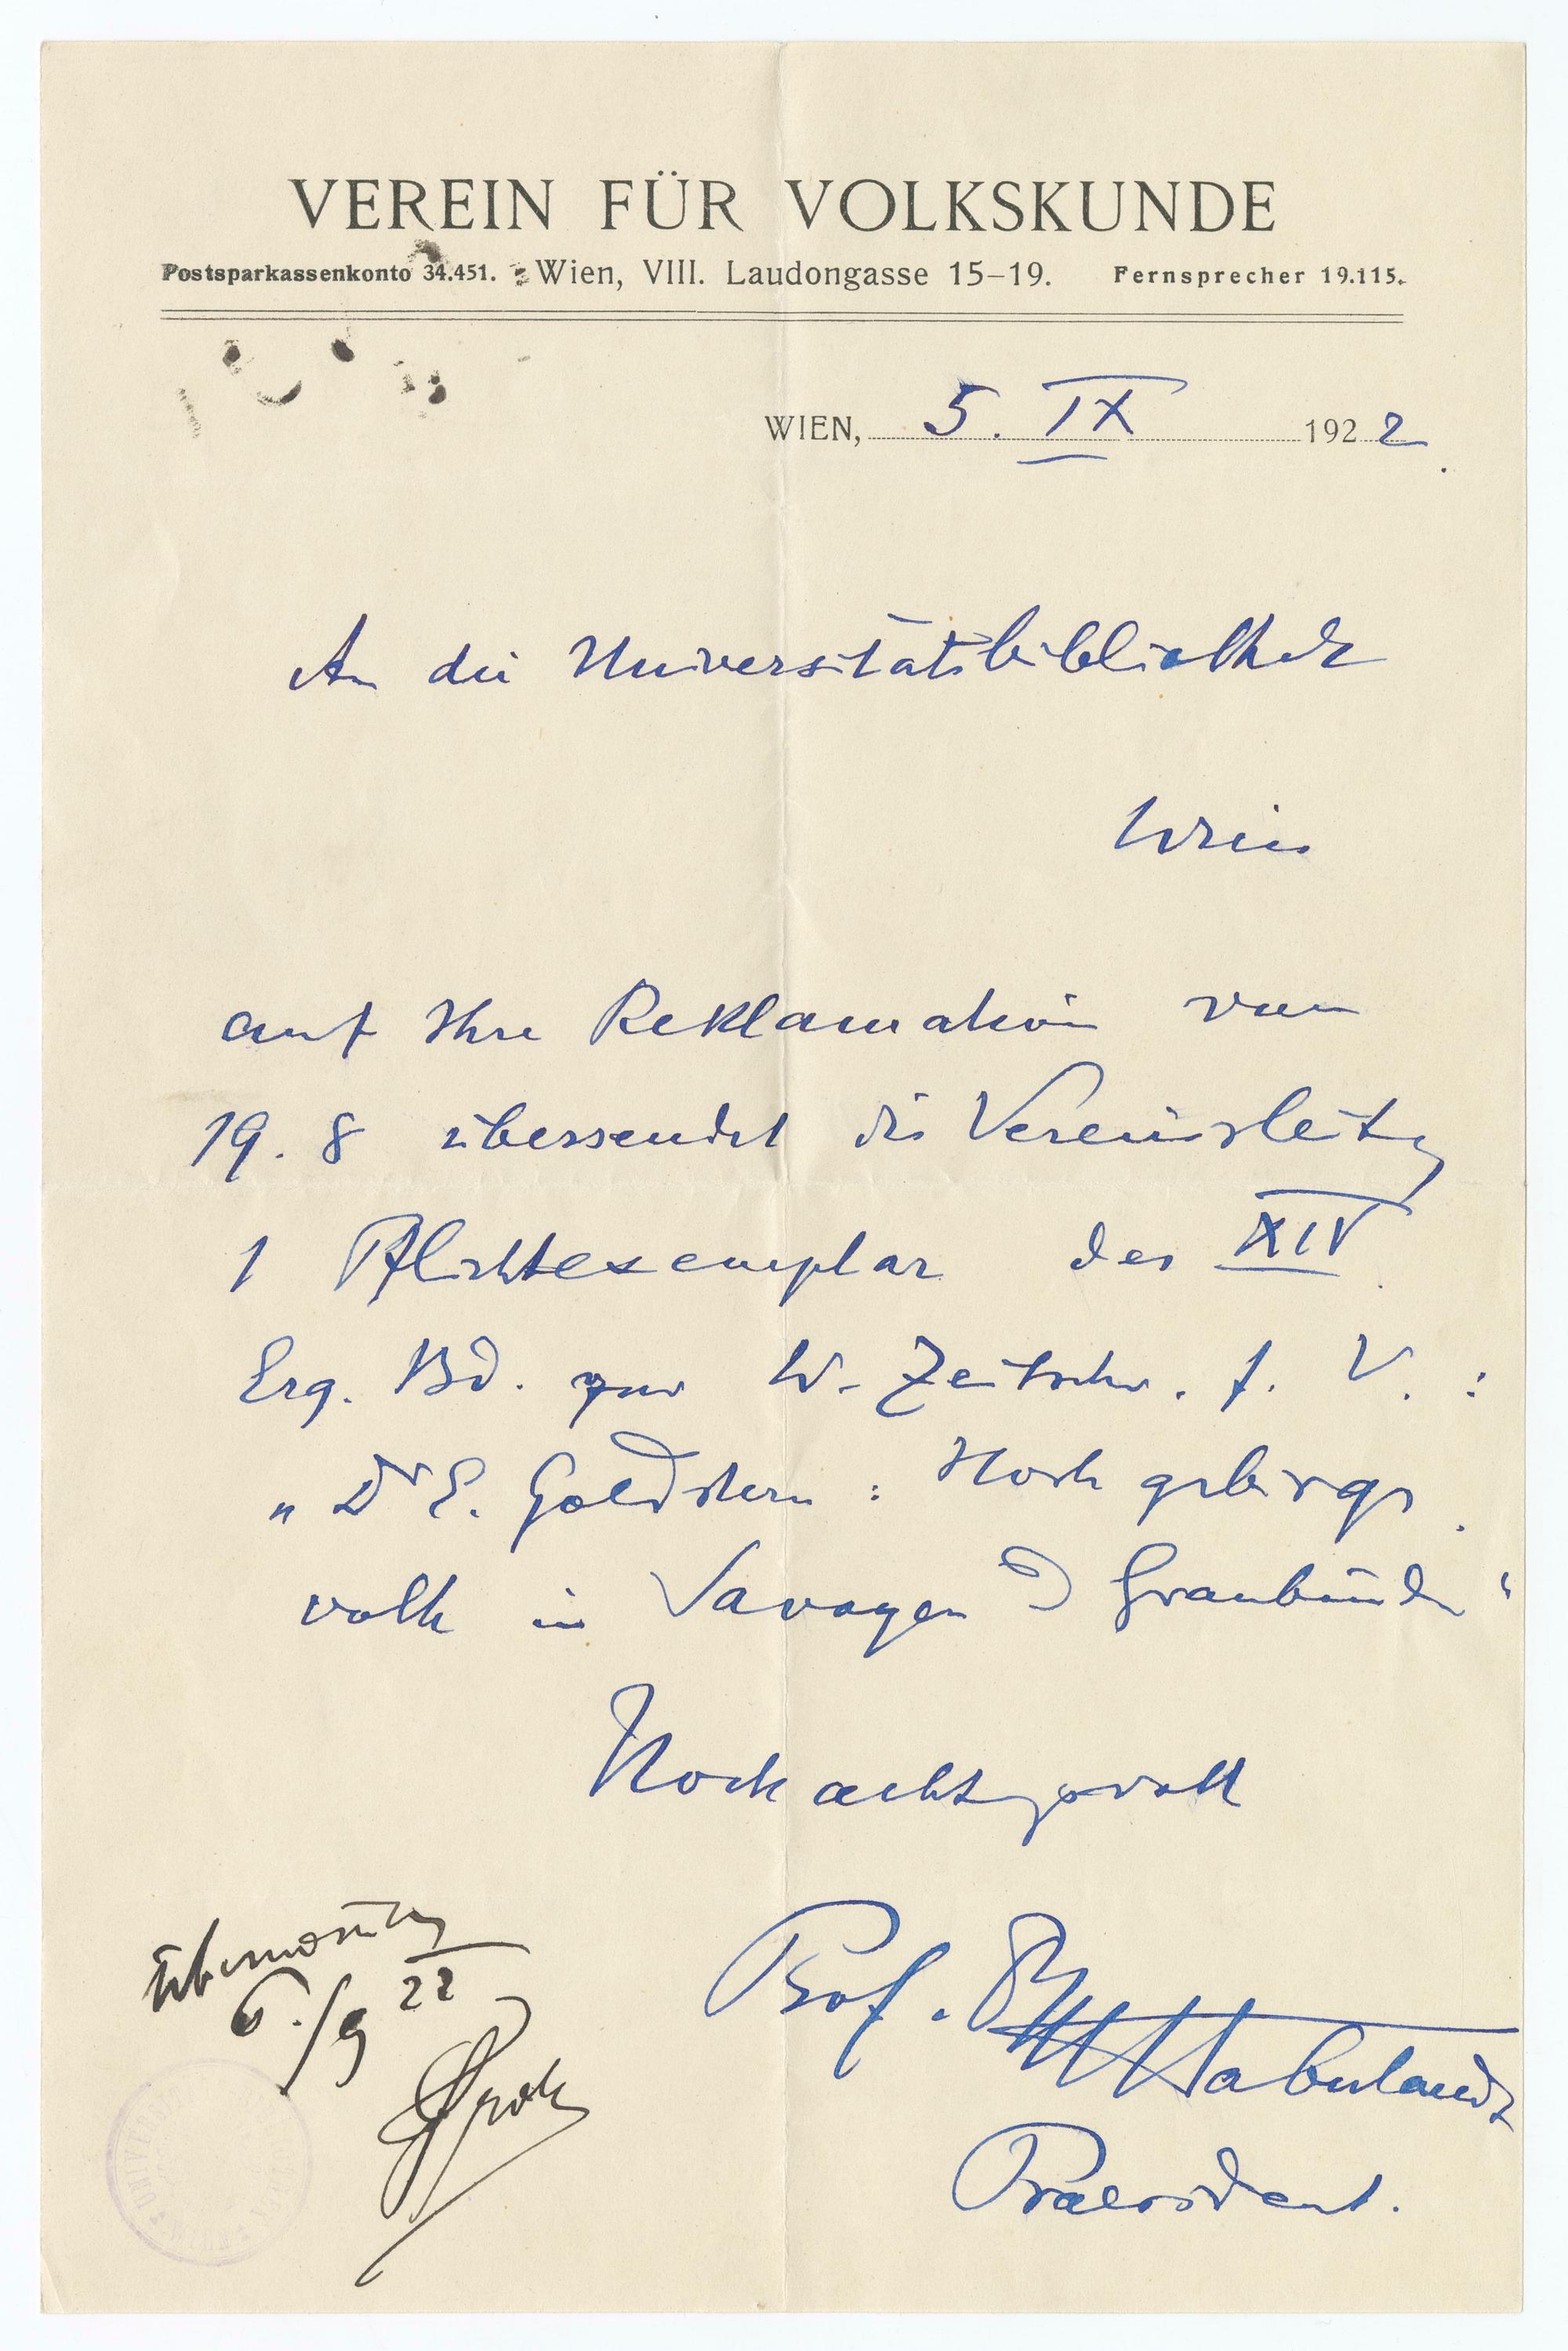 VEREIN FÜR VOLKSKUNDE
Postsparkassenkonto 34.451. Wien, VIII. Laudongasse 15–19. Fernsprecher 19.115.
WIEN, 5. IX 1922.
An die Universitätsbibliothek
Wien
auf Ihre Reklamation vom
19. 8 übersendet die Vereinsleitg
1 Pflichtexemplar des XIV.
Erg. Bd. zur W. Zeitschr. f. V. :
„Dr E. Goldstern : Hochgebirgs
volk in Savoyen u Graubünden“
Hochachtgsvoll
Prof. Haberlandt
Praesident.
6./9 22
UNIVER